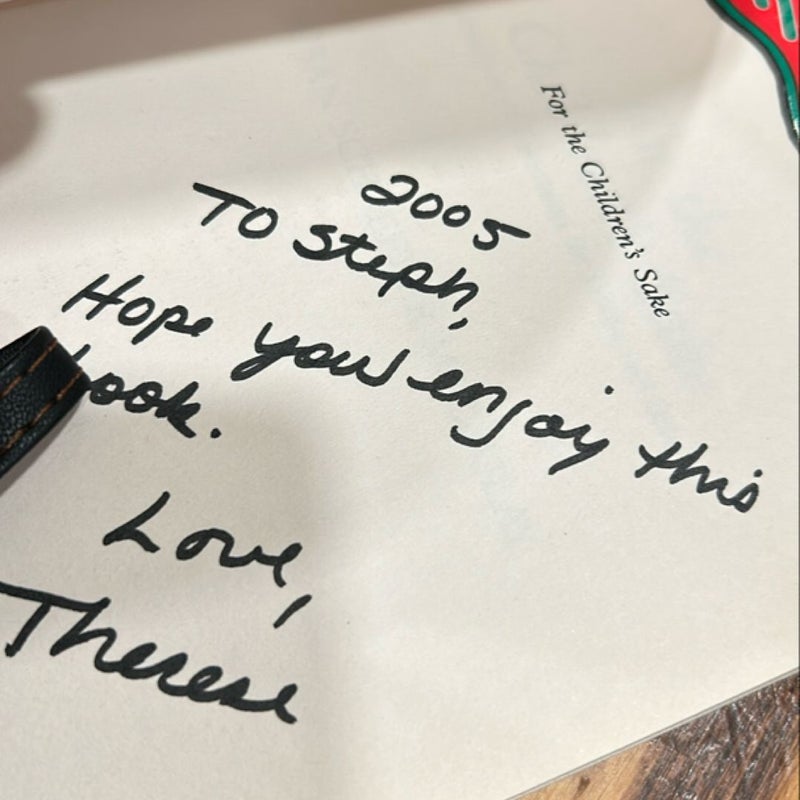 For the Children's Sake
2005
TO Steph,
Hope you enjoy this
book.
Love,
Therese